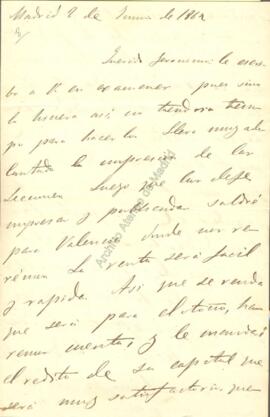 Madrid 2 de Junio de 1862
Querido Jeronimo: le escri
bo a V. en examenes pues sino
lo hiciera asi, no tendria tiem
po para hacerlo. Llevo muy ade
lantada la impresion de las
Lecciones. Luego que las deje
impresas y publicadas saldré
para Valencia donde nos ve
rémos. La venta será facil
y rapida. Asi que se venda
que será para el otoño, ha
remos cuentas y le mandaré
el redito de su capital que
será muy satisfactorio, que
Archivo Ateneo de Madrid